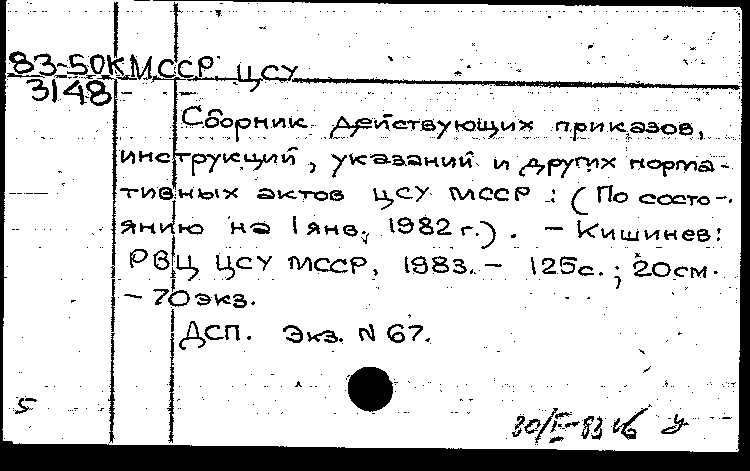 83-50К МССР. ЦСУ
3148
Сборник действующих приказов,
инструкций, указаний и других норма-
тивных актов ЦСУ МССР : (По состо-
янию на 1 янв. 1982 г.). - Кишинев:
РВЦ ЦСУ МССР, 1983. - 125с. ; 20см.
- 70экз.
ДСП. Экз. N 67.
5
30/I-83